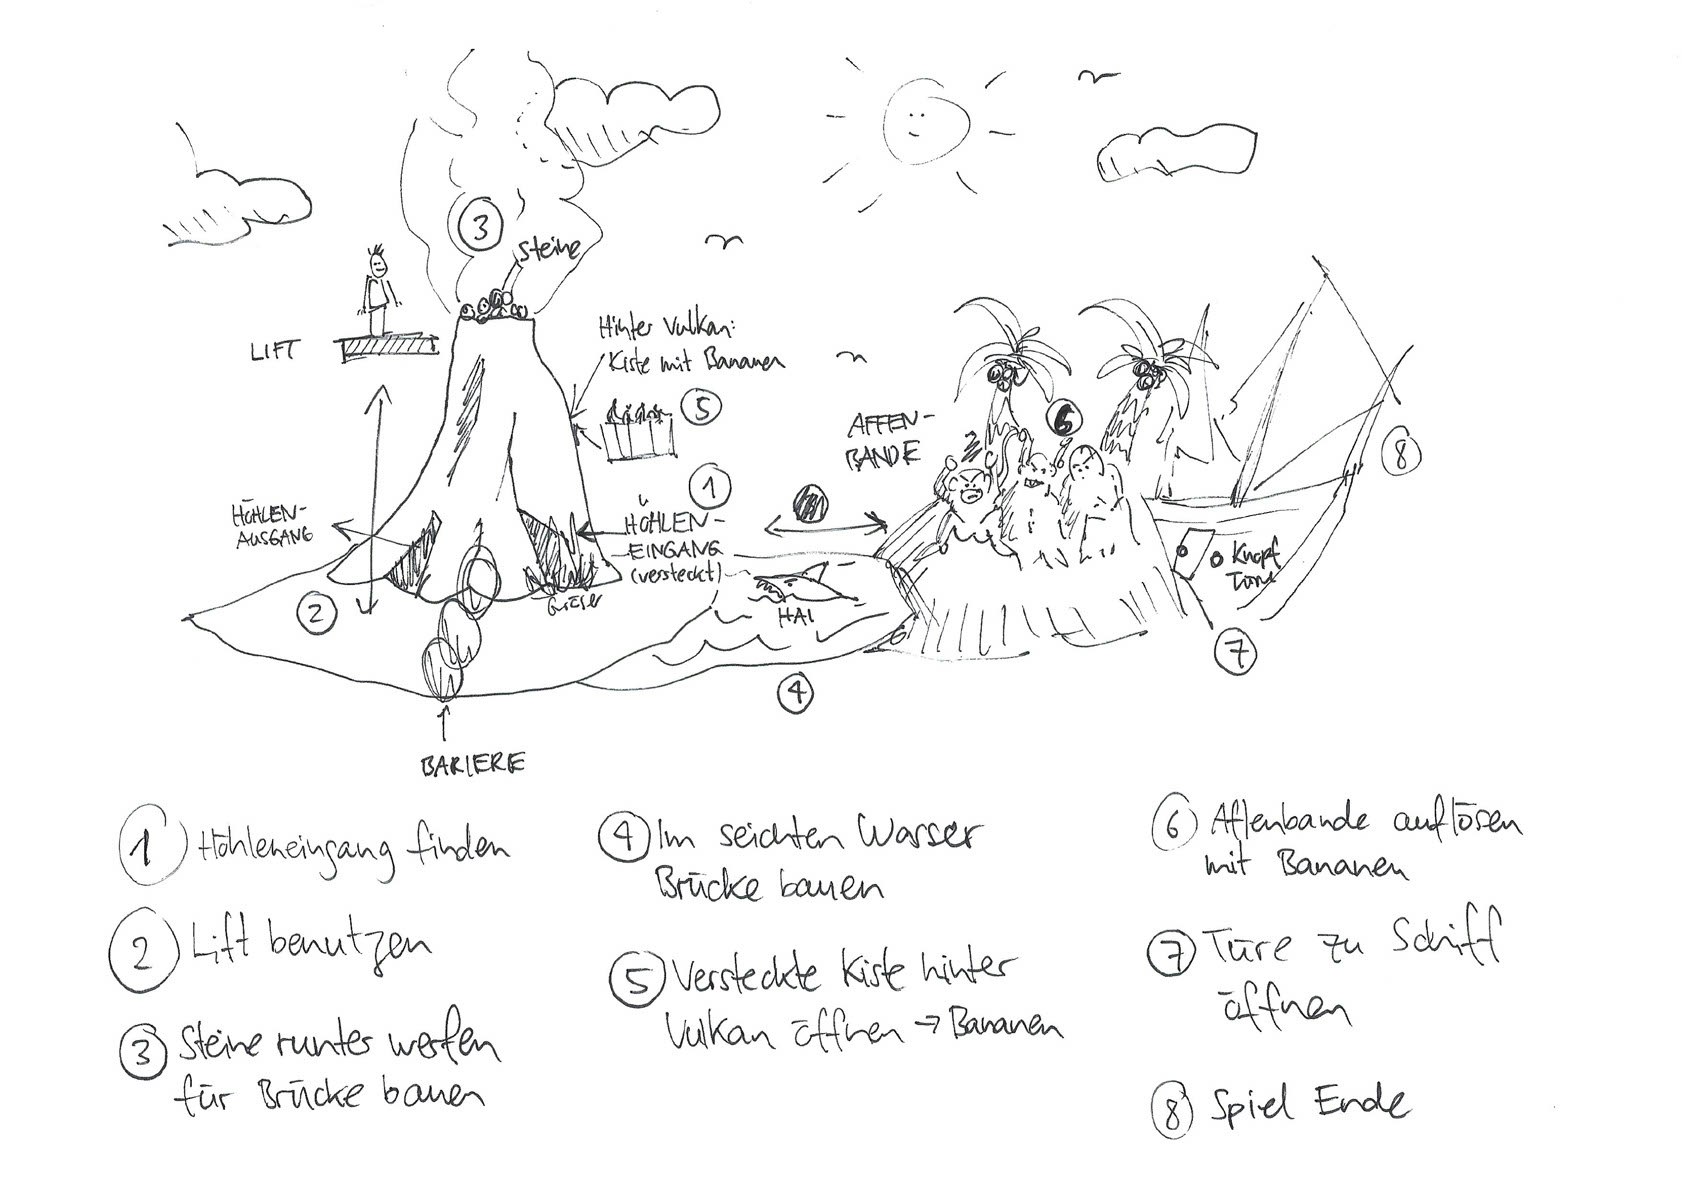 3
Steine
LIFT
Hinter Vulkan:
Kiste mit Bananen
5
AFFEN-
BANDE
6
8
1
HÖHLEN-
AUSGANG
HÖHLEN-
EINGANG
(versteckt)
Gräser
HAI
Knopf
Türe
2
7
4
BARIERE
1 Höhleneingang finden
2 Lift benutzen
3 Steine runter werfen
für Brücke bauen
4 Im seichten Wasser
Brücke bauen
5 Versteckte Kiste hinter
Vulkan öffnen → Bananen
6 Affenbande auflösen
mit Bananen
7 Türe zu Schiff
öffnen
8 Spiel Ende